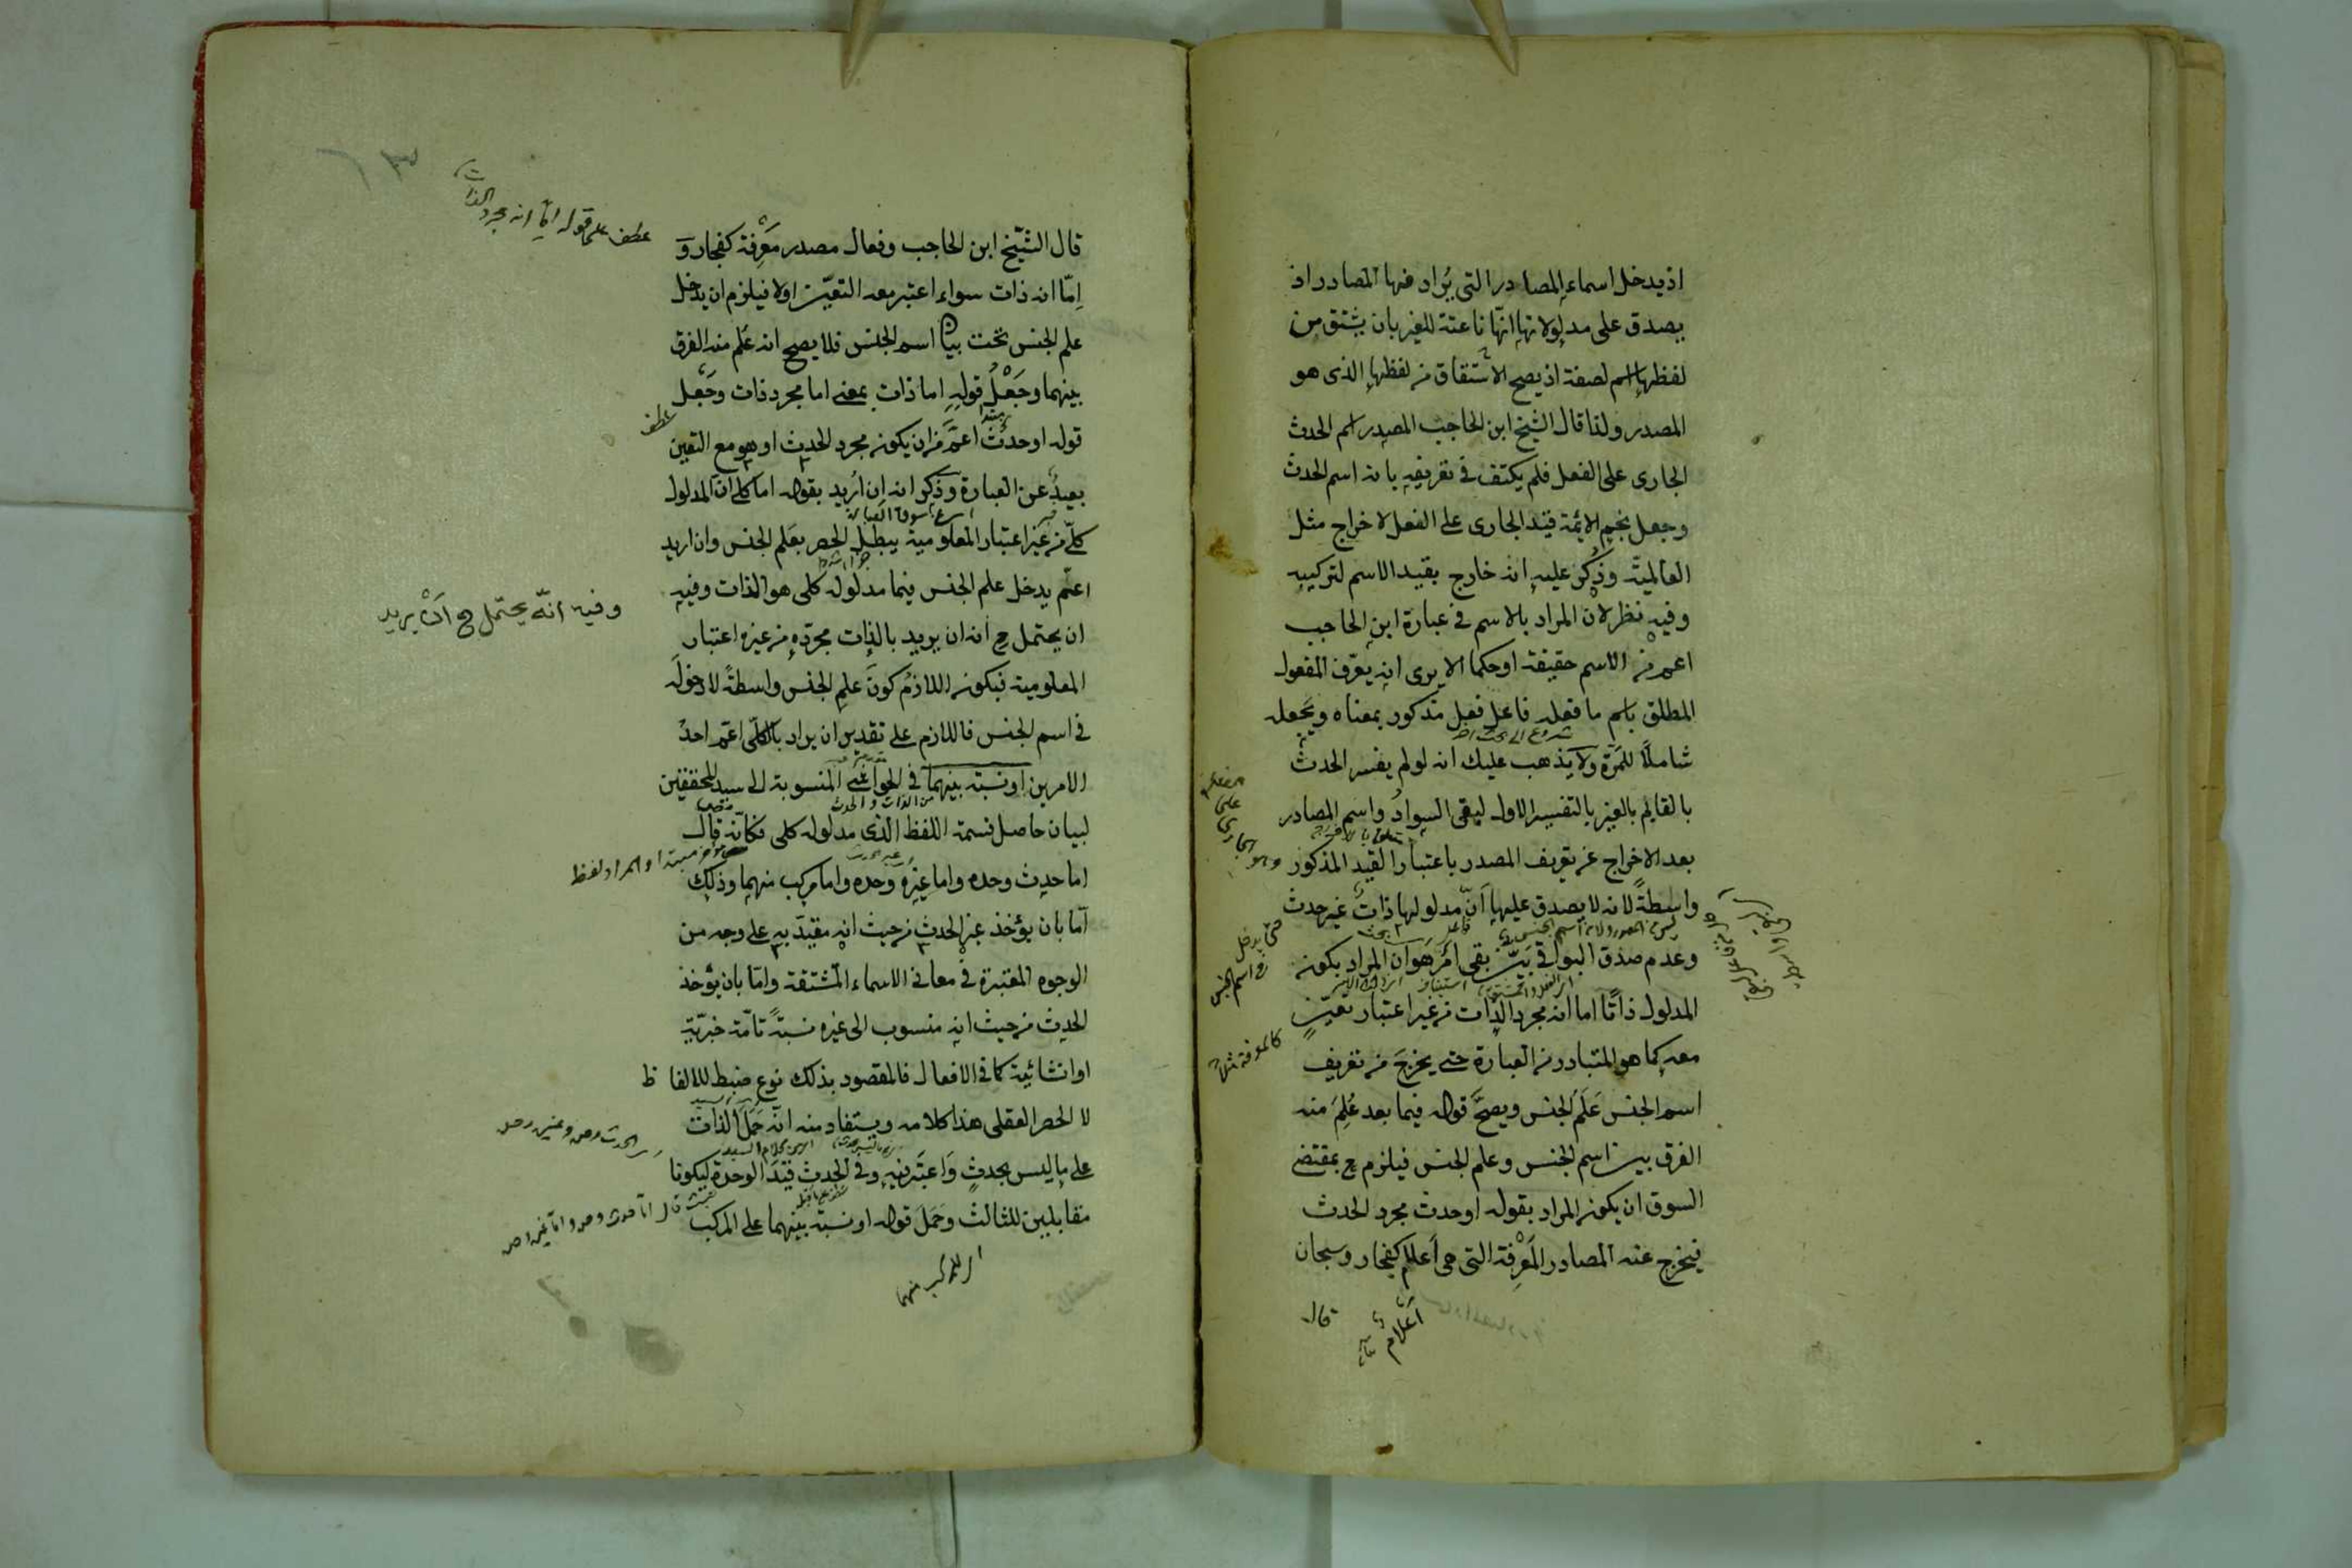 اذ يدخل اسماء المصادر التى يراد منها المصادر اذ
يصدق على مدلولاتها انها ناعتة للغير بان يشتق من
لفظها اسم لصفة اذ يصح الاشتقاق من لفظها الذى هو
المصدر ولذا قال الشيخ ابن الحاجب المصدر اسم الحدث
الجارى على الفعل فلم يكتف فى تعريفه بانه اسم الحدث
وجعل نجم الائمة قيد الجارى على الفعل لاخراج مثل
العالمية وذكر عليه انه خارج بقيد الاسم لتركيبه
وفيه نظر لان المراد بالاسم فى عبارة ابن الحاجب
اعم من الاسم حقيقة او حكما الا يرى انه يعرف المفعول
المطلق باسم ما فعله فاعل فعل مذكور بمعناه ويجعله
شاملا للمرة ولا يذهب عليك انه لو لم يفسر الحدث
بالقايم بالغير بالتفسير الاول ليقى السواد واسم المصادر
بعد الاخراج عن تعريف المصدر باعتبار القيد المذكور
واسطة لانه لا يصدق عليها ان مدلولها ذات غير حدث
وعدم صدق البواقى بين بقى امر هو ان المراد بكونه
المدلول ذاتا اما انه مجرد الذات من غير اعتبار تعين
معه كما هو المتبادر من العبارة حتى يخرج من تعريف
اسم الجنس علم الجنس ويصح قوله فيما بعد علم منه
الفرق بين اسم الجنس وعلم الجنس فيلزم ح بمقتضى
السوق ان يكون المراد بقوله او حدث مجرد الحدث
فيخرج عنه المصادر المعرفة التى هى اعلام كفجار وسبحان
قال
اعلام
حتى يدخل
فى اسم الجنس
كالمعرفة مثلا
قال الشيخ ابن الحاجب وفعال مصدر معرفة كفجار و
اما انه ذات سواء اعتبر معه التعين اولا فيلزم ان يدخل
علم الجنس تحت بيان اسم الجنس فلا يصح انه علم منه الفرق
بينهما وجعل قوله اما ذات بمعنى اما مجرد ذات وجعل
قوله او حدث اعم من ان يكون مجرد الحدث او هو مع التعين
بعيد عن العبارة وذكر انه ان اريد بقوله اما كلى ان المدلول
كلى من غير اعتبار المعلومية يبطل الحصر بعلم الجنس وان اريد
اعم يدخل علم الجنس فيما مدلوله كلى هو الذات وفيه
ان يحتمل ح انه ان يريد بالذات مجرده من غير اعتبار
المعلومية فيكون اللازم كون علم الجنس واسطة لا دخوله
فى اسم الجنس فاللازم على تقدير ان يراد بالكلى اعم احد
الامرين او نسبة بينهما فى الحواشى المنسوبة الى سيد المحققين
لبيان حاصل قسمة اللفظ الذى مدلوله كلى فكانه قال
اما حدث وحده واما غيره وحده واما مركب منهما وذلك
اما بان يؤخذ غير الحدث من حيث انه مقيد به على وجه من
الوجوه المعتبرة فى معانى الاسماء المشتقة واما بان يؤخذ
الحدث من حيث انه منسوب الى غيره نسبة تامة خبرية
او انشائية كما فى الافعال فالمقصود بذلك نوع ضبط للالفاظ
لا الحصر العقلى هذا كلامه ويستفاد منه انه حمل الذات
على ما ليس بحدث واعتبر فيه وفى الحدث قيد الوحدة ليكونا
مقابلين للثالث وحمل قوله او نسبة بينهما على المركب
عطف على قوله اما انه مجرد الذات
عطف
وفيه انه يحتمل ح ان يريد